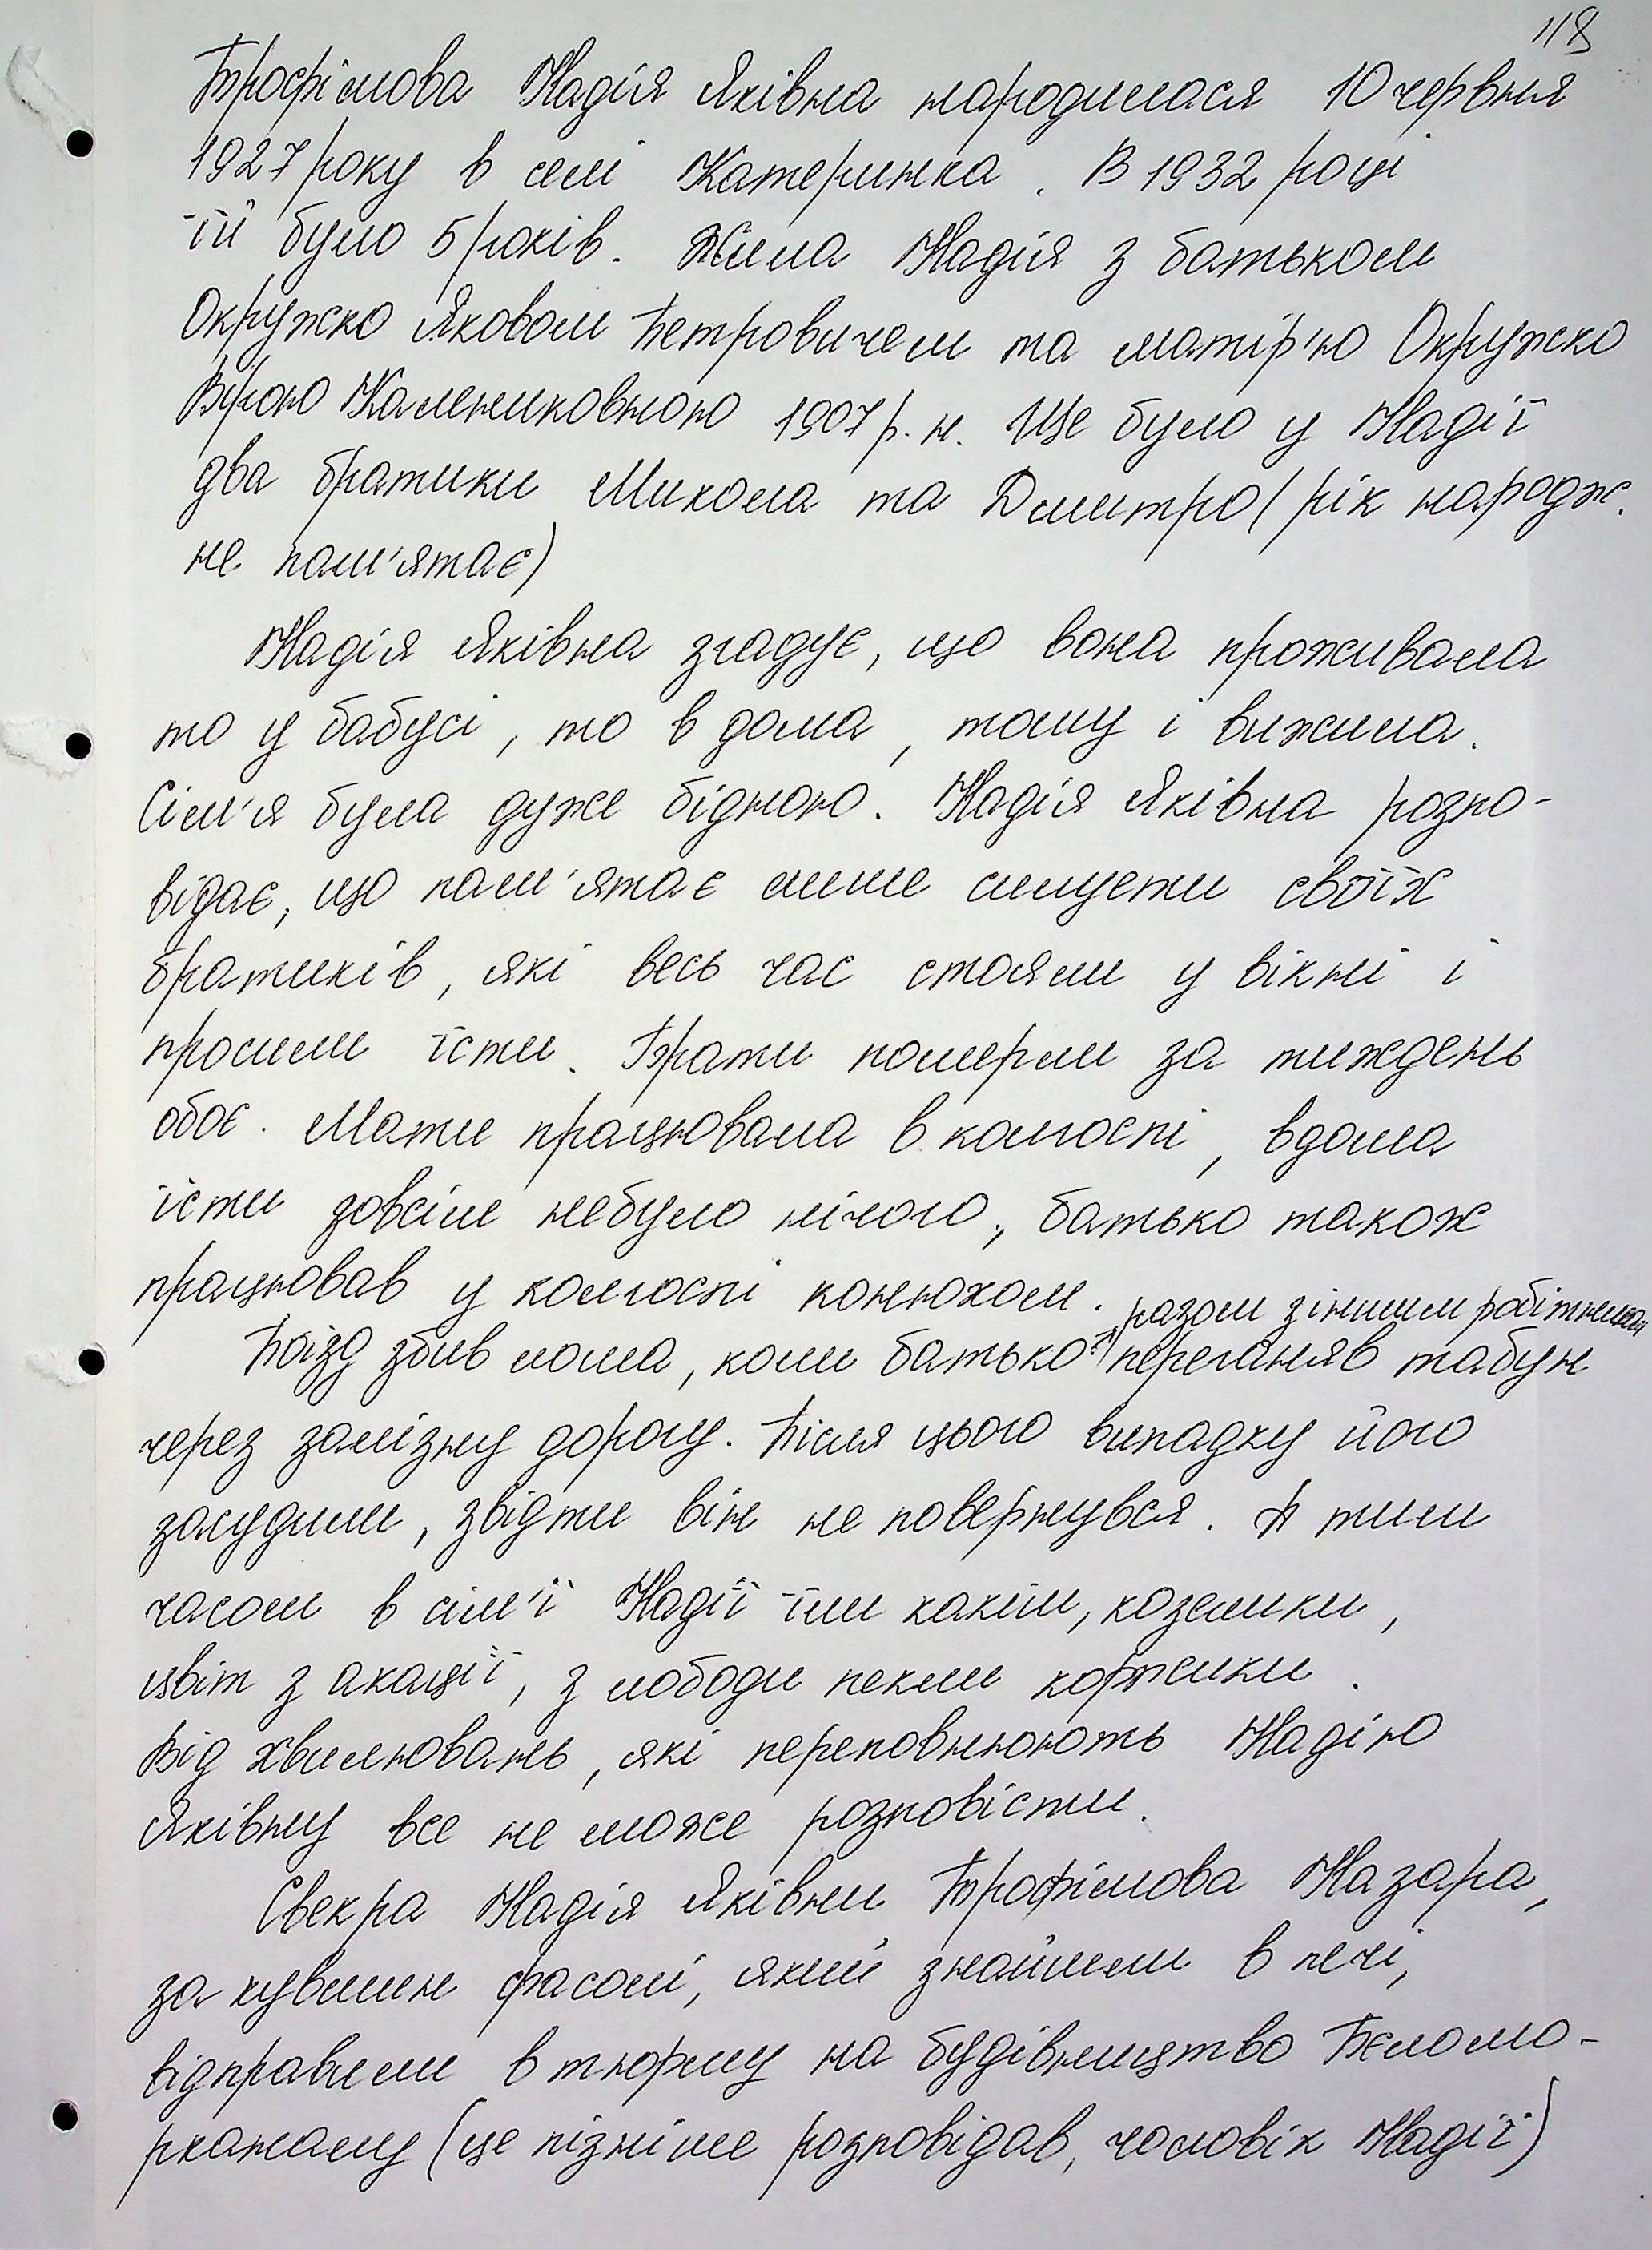 118
Трофімова Надія Яківна народилася 10 червня
1927 року в селі Катеринка. В 1932 році
їй було 5 років. Жила Надія з батьком
Окружко Яковом Петровичем та матір'ю Окружко
Вірою Калениковною 1907 р. н. Ще було у Надії
два братики Микола та Дмитро (рік народж.
не пам'ятає)
Надія Яківна згадує, що вона проживала
то у бабусі, то в дома, тому і вижила.
Сім'я була дуже бідною. Надія Яківна розпо-
відає, що пам'ятає лише силуети своїх
братиків, які весь час стояли у вікні і
просили їсти. Брати померли за тиждень
обоє. Мати працювала в колгоспі, вдома
їсти зовсім небуло нічого, батько також
працював у колгоспі конюхом.
разом зіншим робітником
Поїзд збив лоша, коли батько переганяв табун
через залізну дорогу. Після цього випадку його
засудили, звідти він не повернувся. А тим
часом в сім'ї Надії їли калим, козелики,
цвіт з акації, з лободи пекли коржики.
Від хвилювань, які переповнюють Надію
Яківну все не може розповісти.
Свекра Надія Яківни Трофімова Назара,
за кувшин фасолі, який знайшли в печі,
відправили в тюрму на будівництво Бєломо-
рканалу (це пізніше розповідав, чоловік Надії)